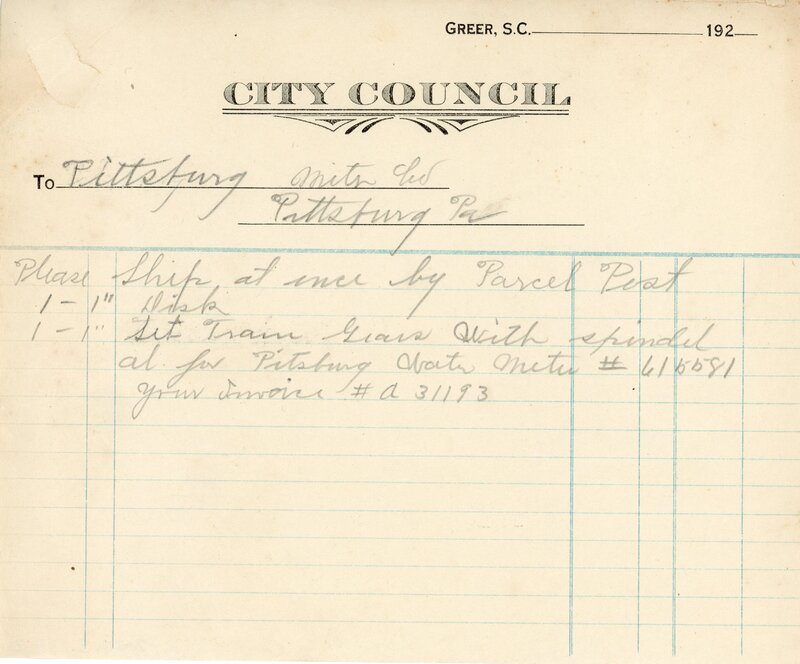 GREER, S.C. 192
CITY COUNCIL
To Pittsburg Meter Co
Pittsburg Pa
Please Ship at once by Parcel Post
1 - 1" Disk
1 - 1" Set Train Gears With spindel
al for Pitsburg Water Meter # 615581
your Invoice # A 31193